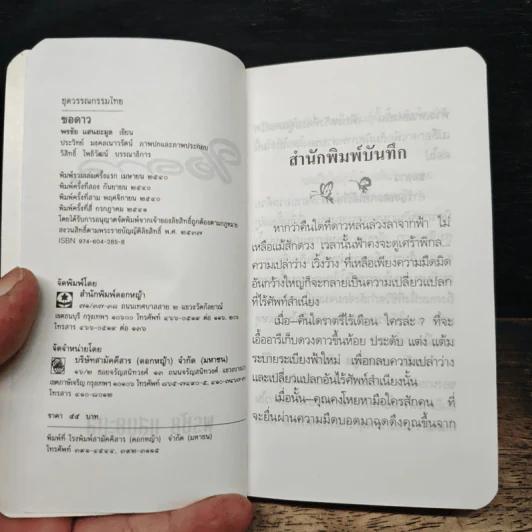 ชุดวรรณกรรมไทย
ขอดาว
พรชัย แสนยะมูล เขียน
ประวิทย์ มงคลเนาวรัตน์ ภาพปกและภาพประกอบ
วิสิทธิ์ โพธิวัฒน์ บรรณาธิการ
พิมพ์รวมเล่มครั้งแรก เมษายน ๒๕๔๐
พิมพ์ครั้งที่สอง กันยายน ๒๕๔๐
พิมพ์ครั้งที่สาม พฤศจิกายน ๒๕๔๐
พิมพ์ครั้งที่สี่ กรกฎาคม ๒๕๔๑
โดยได้รับการอนุญาตจัดพิมพ์จากเจ้าของลิขสิทธิ์ถูกต้องตามกฎหมาย
สงวนสิทธิ์ตามพระราชบัญญัติลิขสิทธิ์ พ.ศ. ๒๕๓๗
ISBN 974-604-285-8
จัดพิมพ์โดย
สำนักพิมพ์ดอกหญ้า
ถนนเทศบาลสาย ๒ แขวงวัดกัลยาณ์
เขตธนบุรี กรุงเทพฯ
โทรสาร
จัดจำหน่ายโดย
บริษัทสามัคคีสาร (ดอกหญ้า) จำกัด (มหาชน)
ซอยจรัญสนิทวงศ์ ถนนจรัญสนิทวงศ์
เขตภาษีเจริญ กรุงเทพฯ ๑๐๑๖๐ โทรศัพท์
โทรสาร
ราคา ๕๕ บาท
พิมพ์ที่ โรงพิมพ์สามัคคีสาร (ดอกหญ้า) จำกัด (มหาชน)
โทรศัพท์
สำนักพิมพ์บันทึก
หากว่าคืนใดที่ดาวหล่นล่วงลาจากฟ้า ไม่
เหลือแม้สักดวง เวลานั้นฟ้าคงจะดูเศร้าพิกล...
ความเปล่าว่าง เวิ้งว้าง ที่เหลือเพียงความมืดมิด
อันกว้างใหญ่ก็จะกลายเป็นความเปลี่ยวแปลก
ที่ไร้ศัพท์สำเนียง
เมื่อ–คืนใดราตรีไร้เดือน ใครล่ะ ? ที่จะ
เอื้ออารีเก็บดวงดาวขึ้นห้อย ประดับ แต่ง แต้ม
ระบายระเบียงฟ้าใหม่ เพื่อกลบความเปล่าว่าง
และเปลี่ยวแปลกอันไร้ศัพท์สำเนียงนั้น
เมื่อนั้น–คุณคงโหยหามือใครสักคน ที่
จะยื่นผ่านความมืดบอดมาฉุดดึงคุณขึ้นจาก